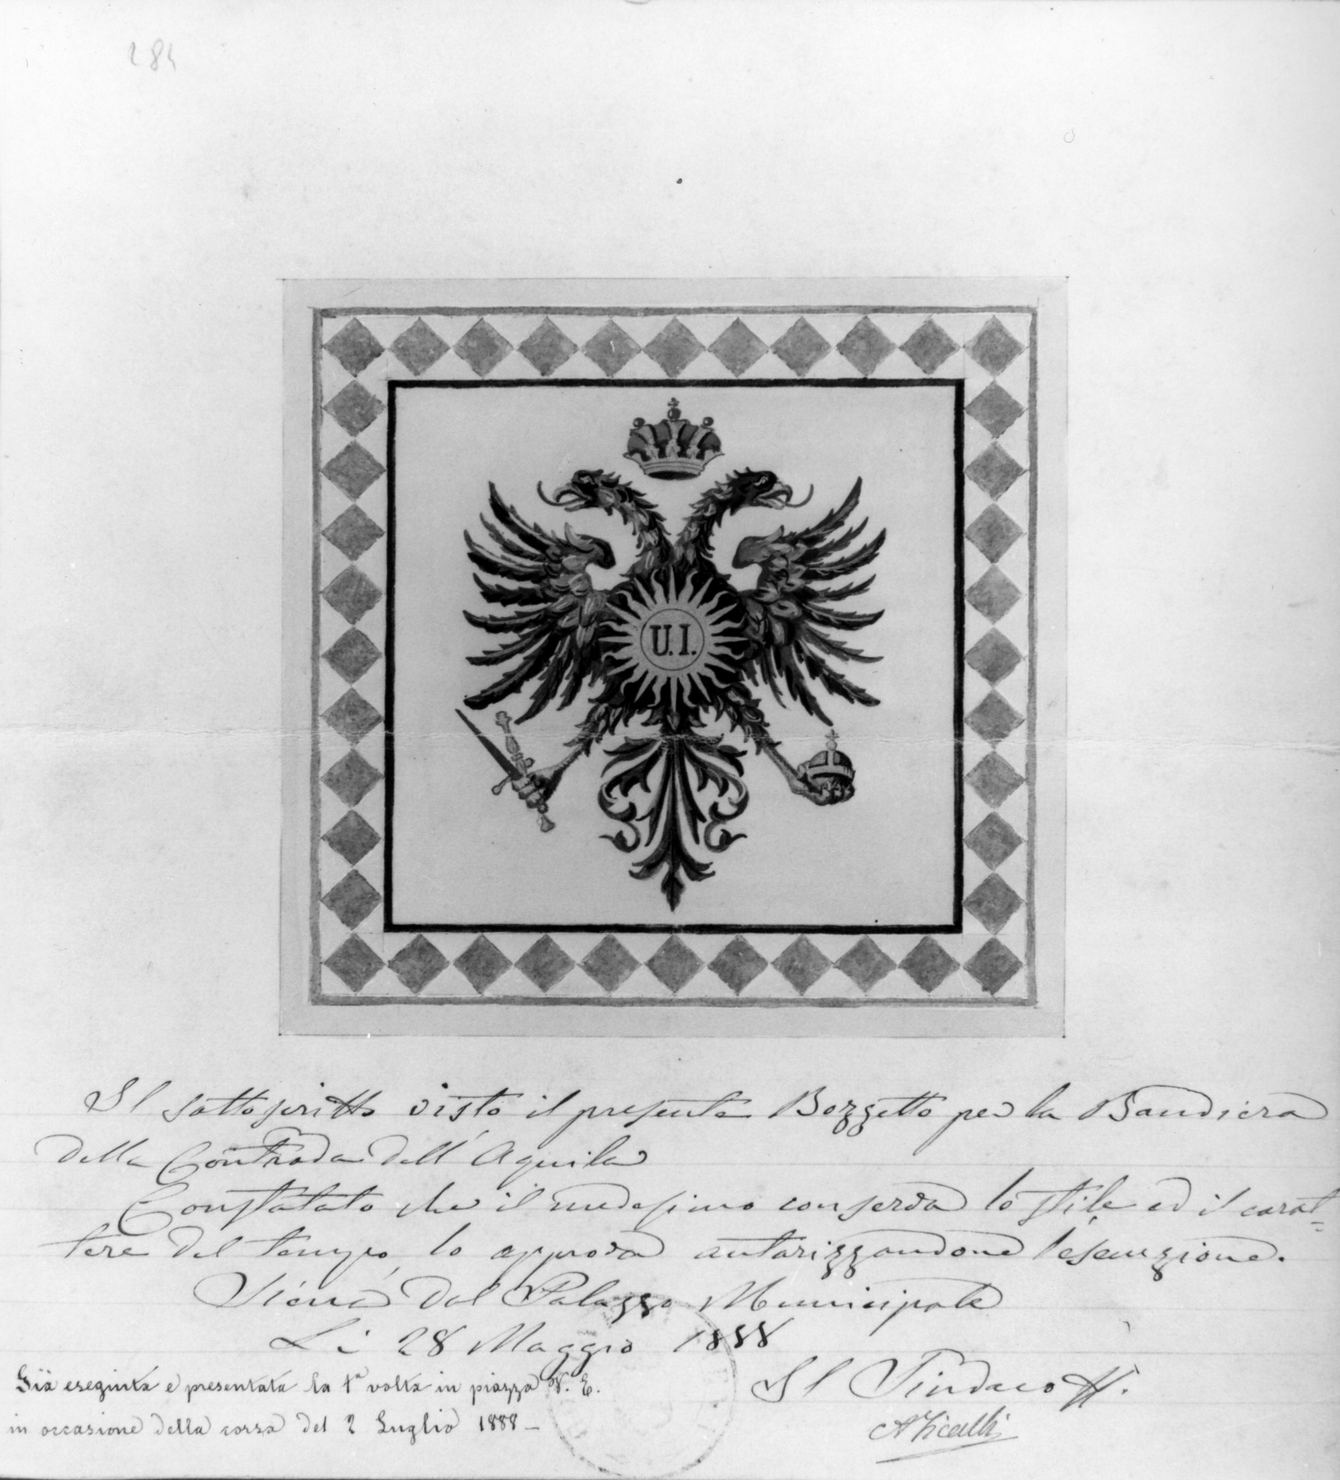 284
U.I.
Il sottoscritto visto il presente Bozzetto per la Bandiera
della Contrada dell'Aquila
Constatato che il medesimo conserva lo stile ed il carat-
tere del tempo, lo approva autorizzandone l'esecuzione.
Siena dal Palazzo Municipale
Li 28 Maggio 1888
Il Sindaco ff.
Già eseguita e presentata la 1ª volta in piazza V. E.
in occasione della corsa del 2 Luglio 1888 –